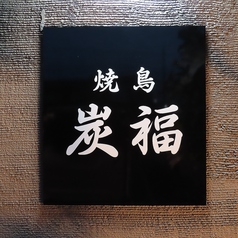 焼鳥
炭福